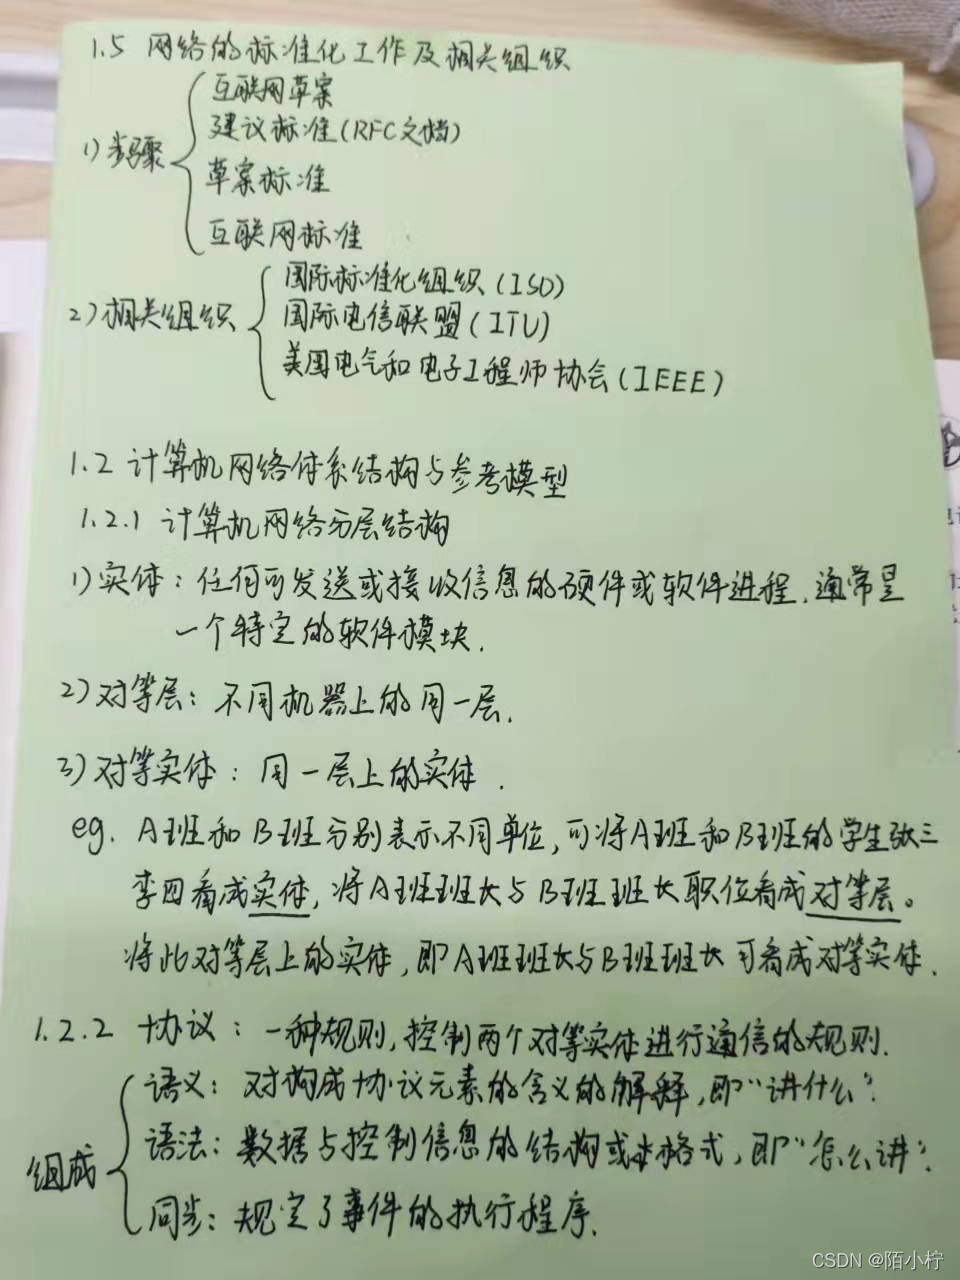 1.5 网络的标准化工作及相关组织
1) 步骤
互联网草案
建议标准(RFC文档)
草案标准
互联网标准
2) 相关组织
国际标准化组织(ISO)
国际电信联盟(ITU)
美国电气和电子工程师协会(IEEE)
1.2 计算机网络体系结构与参考模型
1.2.1 计算机网络分层结构
1) 实体：任何可发送或接收信息的硬件或软件进程.通常是
一个特定的软件模块.
2) 对等层：不同机器上的同一层.
3) 对等实体：同一层上的实体.
eg. A班和B班分别表示不同单位,可将A班和B班的学生张三
李四看成实体,将A班班长与B班班长职位看成对等层。
将此对等层上的实体,即A班班长与B班班长可看成对等实体.
1.2.2 协议：一种规则,控制两个对等实体进行通信的规则.
组成
语义：对构成协议元素的含义的解释,即"讲什么".
语法：数据与控制信息的结构或格式,即"怎么讲".
同步：规定了事件的执行程序.
CSDN @陌小柠